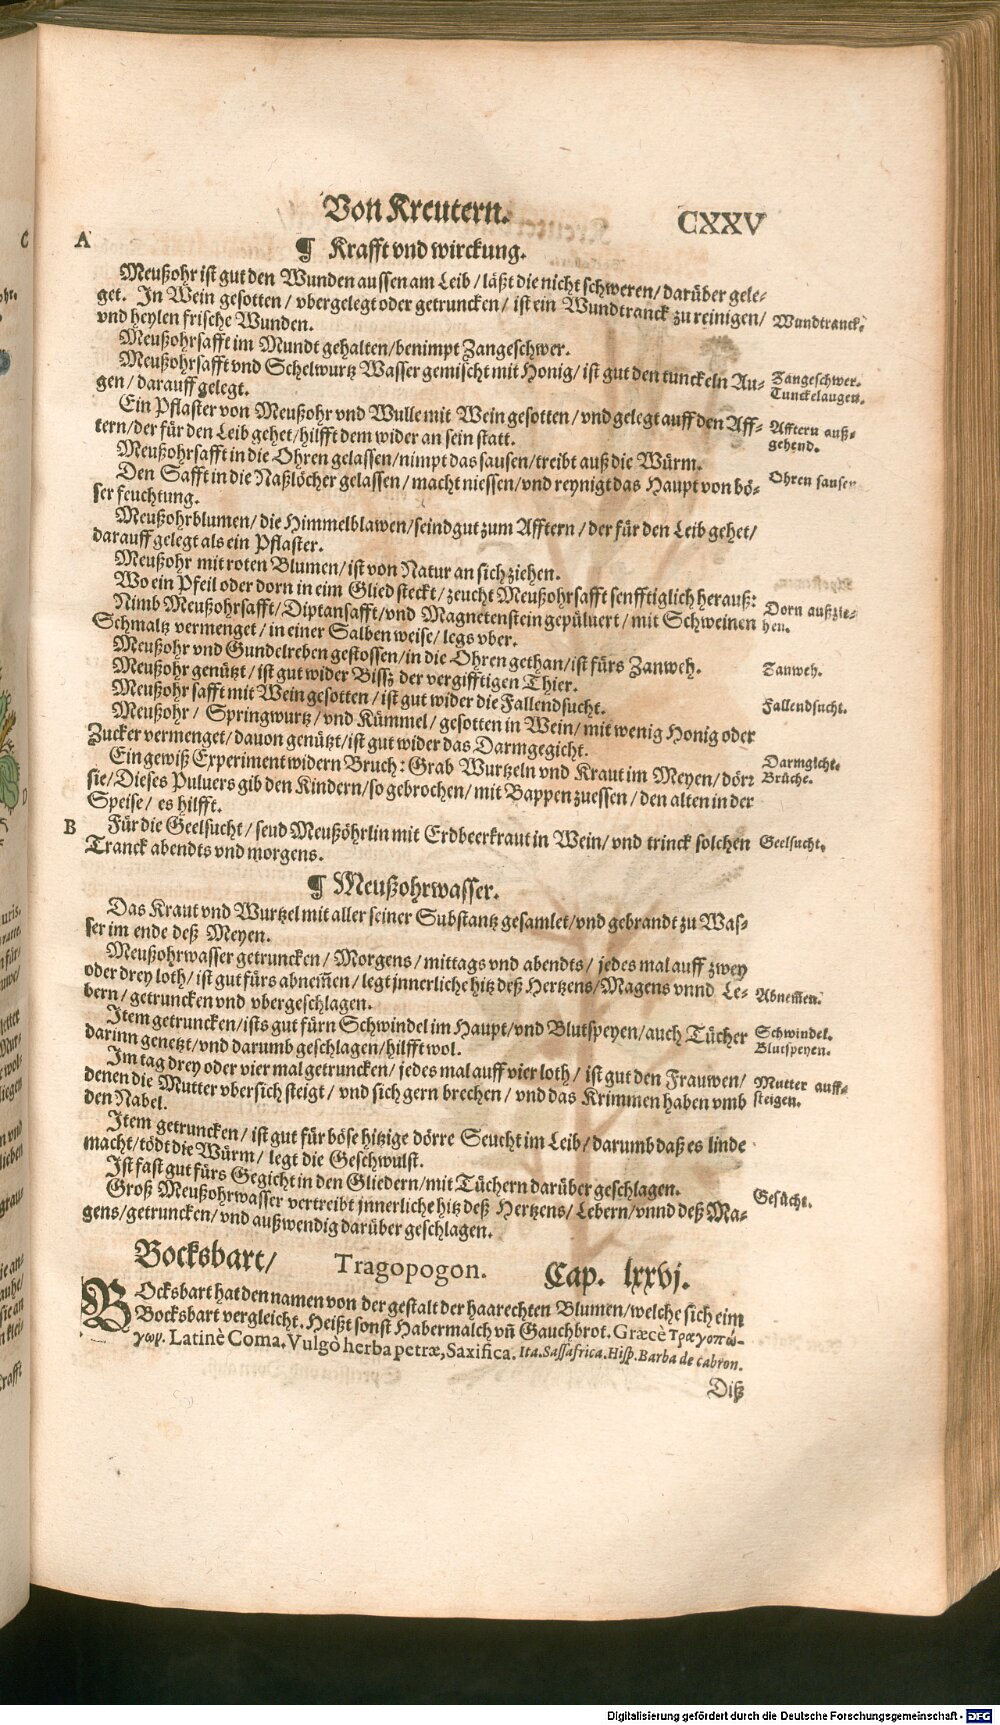 Von Kreutern. CXXV
A
¶ Krafft vnd wirckung.
Meußohr ist gut den Wunden aussen am Leib / läßt die nicht schweren / darüber gele-
get. In Wein gesotten / vbergelegt oder getruncken / ist ein Wundtranck zu reinigen / Wundtranck.
vnd heylen frische Wunden.
Meußohrsafft im Mundt gehalten / benimpt Zangeschwer.
Meußohrsafft vnd Schelwurtz Wasser gemischt mit Honig / ist gut den tunckeln Au- Zangeschwer.
gen / darauff gelegt. Tunckelaugen.
Ein Pflaster von Meußohr vnd Wulle mit Wein gesotten / vnd gelegt auff den Aff- Afftern auß-
tern / der für den Leib gehet / hilfft dem wider an sein statt. gehend.
Meußohrsafft in die Ohren gelassen / nimpt das sausen / treibt auß die Würm.
Den Safft in die Naßlöcher gelassen / macht niessen / vnd reynigt das Haupt von bö- Ohren sausen
ser feuchtung.
Meußohrblumen / die Himmelblawen / seind gut zum Afftern / der für den Leib gehet /
darauff gelegt als ein Pflaster.
Meußohr mit roten Blumen / ist von Natur an sich ziehen.
Wo ein Pfeil oder dorn in eim Glied steckt / zeucht Meußohrsafft senfftiglich herauß:
Nimb Meußohrsafft / Diptansafft / vnd Magnetenstein gepüluert / mit Schweinen Dorn außzie-
Schmaltz vermenget / in einer Salben weise / legs vber. hen.
Meußohr vnd Gundelreben gestossen / in die Ohren gethan / ist fürs Zanweh. Zanweh.
Meußohr genützt / ist gut wider Bissz der vergifftigen Thier.
Meußohr safft mit Wein gesotten / ist gut wider die Fallendsucht. Fallendsucht.
Meußohr / Springwurtz / vnd Kümmel / gesotten in Wein / mit wenig Honig oder
Zucker vermenget / dauon genützt / ist gut wider das Darmgegicht. Darmgicht.
Ein gewiß Experiment widern Bruch: Grab Wurtzeln vnd Kraut im Meyen / dörr Brüche.
sie / Dieses Puluers gib den Kindern / so gebrochen / mit Bappen zuessen / den alten in der
Speise / es hilfft.
B Für die Geelsucht / seud Meußöhrlin mit Erdbeerkraut in Wein / vnd trinck solchen Geelsucht.
Tranck abendts vnd morgens.
¶ Meußohrwasser.
Das Kraut vnd Wurtzel mit aller seiner Substantz gesamlet / vnd gebrandt zu Was-
ser im ende deß Meyen.
Meußohrwasser getruncken / Morgens / mittags vnd abendts / jedes mal auff zwey
oder drey loth / ist gut fürs abnem̄en / legt jnnerliche hitz deß Hertzens / Magens vnnd Le- Abnem̄en.
bern / getruncken vnd vbergeschlagen.
Item getruncken / ists gut fürn Schwindel im Haupt / vnd Blutspeyen / auch Tücher Schwindel.
darinn genetzt / vnd darumb geschlagen / hilfft wol. Blutspeyen.
Im tag drey oder vier mal getruncken / jedes mal auff vier loth / ist gut den Frauwen / Mutter auff-
denen die Mutter vbersich steigt / vnd sich gern brechen / vnd das Krimmen haben vmb steigen.
den Nabel.
Item getruncken / ist gut für böse hitzige dörre Seucht im Leib / darumb daß es linde
macht / tödt die Würm / legt die Geschwulst.
Ist fast gut fürs Gegicht in den Gliedern / mit Tüchern darüber geschlagen. Gesücht.
Groß Meußohrwasser vertreibt jnnerliche hitz deß Hertzens / Lebern / vnnd deß Ma-
gens / getruncken / vnd außwendig darüber geschlagen.
Bocksbart / Tragopogon. Cap. lxxvj.
BOcksbart hat den namen von der gestalt der haarechten Blumen / welche sich eim
Bocksbart vergleicht. Heißt sonst Habermalch vñ Gauchbrot. Græcè Τραγοπώ-
γωρ. Latinè Coma, Vulgò herba petræ, Saxifica. Ita. Sassafrica. Hisp. Barba de cabron.
Diß
Digitalisierung gefördert durch die Deutsche Forschungsgemeinschaft - DFG